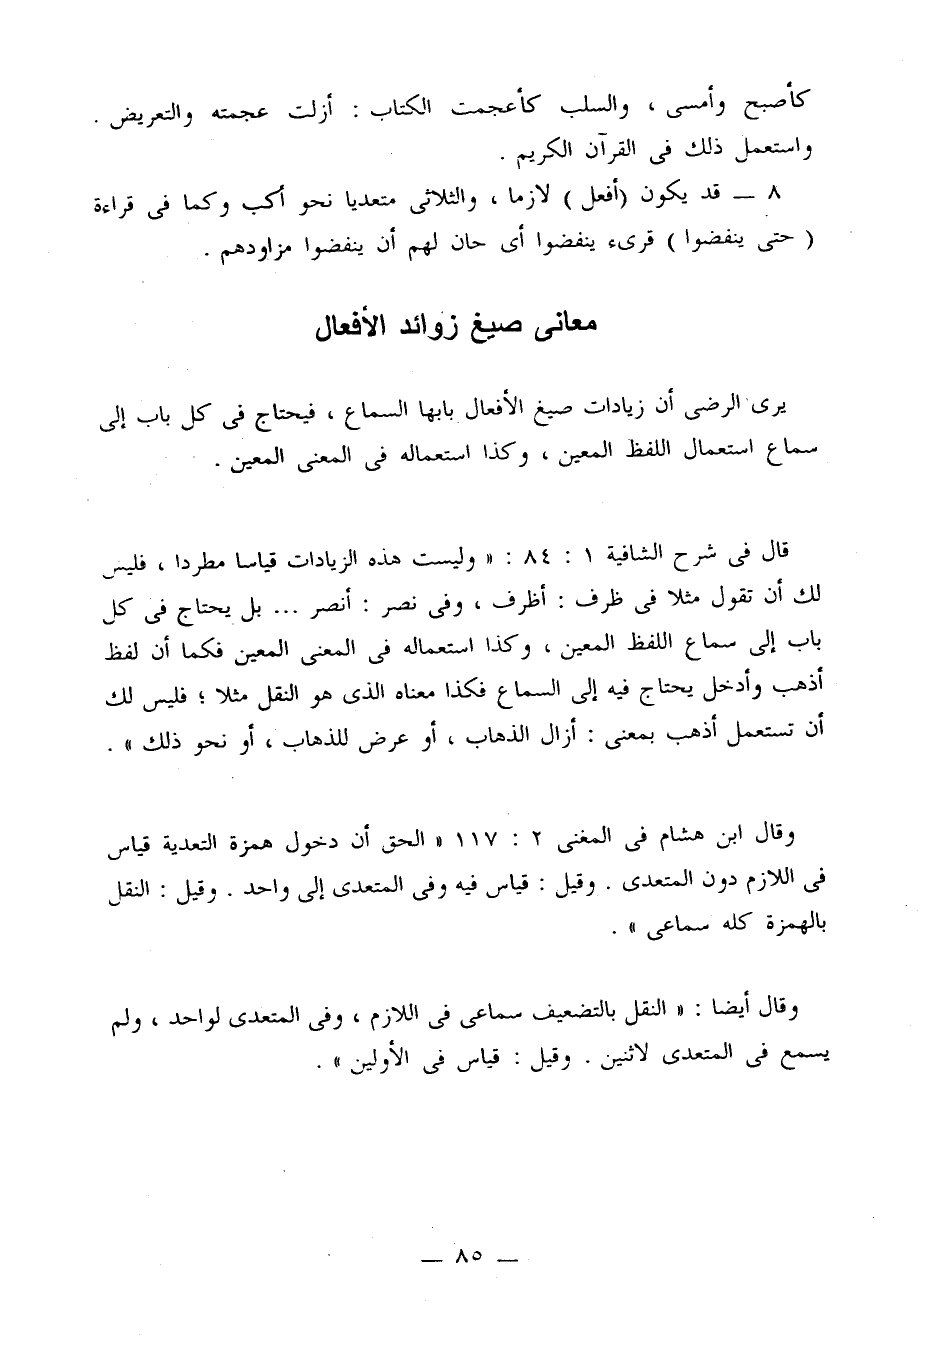 كأصبح وأمسى ، والسلب كأعجمت الكتاب : أزلت عجمته والتعريض .
واستعمل ذلك فى القرآن الكريم .
٨ — قد يكون (أفعل ) لازما ، والثلاثى متعديا نحو أكب وكما فى قراءة
( حتى ينفضوا ) قرىء ينفضوا أى حان لهم أن ينفضوا مزاودهم .
معانى صيغ زوائد الأفعال
يرى الرضى أن زيادات صيغ الأفعال بابها السماع ، فيحتاج فى كل باب إلى
سماع استعمال اللفظ المعين ، وكذا استعماله فى المعنى المعين .
قال فى شرح الشافية ١ : ٨٤ : « وليست هذه الزيادات قياسا مطردا ، فليس
لك أن تقول مثلا فى ظرف : أظرف ، وفى نصر : أنصر ... بل يحتاج فى كل
باب إلى سماع اللفظ المعين ، وكذا استعماله فى المعنى المعين فكما أن لفظ
أذهب وأدخل يحتاج فيه إلى السماع فكذا معناه الذى هو النقل مثلا ؛ فليس لك
أن تستعمل أذهب بمعنى : أزال الذهاب ، أو عرض للذهاب ، أو نحو ذلك » .
وقال ابن هشام فى المغنى ٢ : ١١٧ « الحق أن دخول همزة التعدية قياس
فى اللازم دون المتعدى . وقيل : قياس فيه وفى المتعدى إلى واحد . وقيل : النقل
بالهمزة كله سماعى » .
وقال أيضا : « النقل بالتضعيف سماعى فى اللازم ، وفى المتعدى لواحد ، ولم
يسمع فى المتعدى لاثنين . وقيل : قياس فى الأولين » .
— ٨٥ —